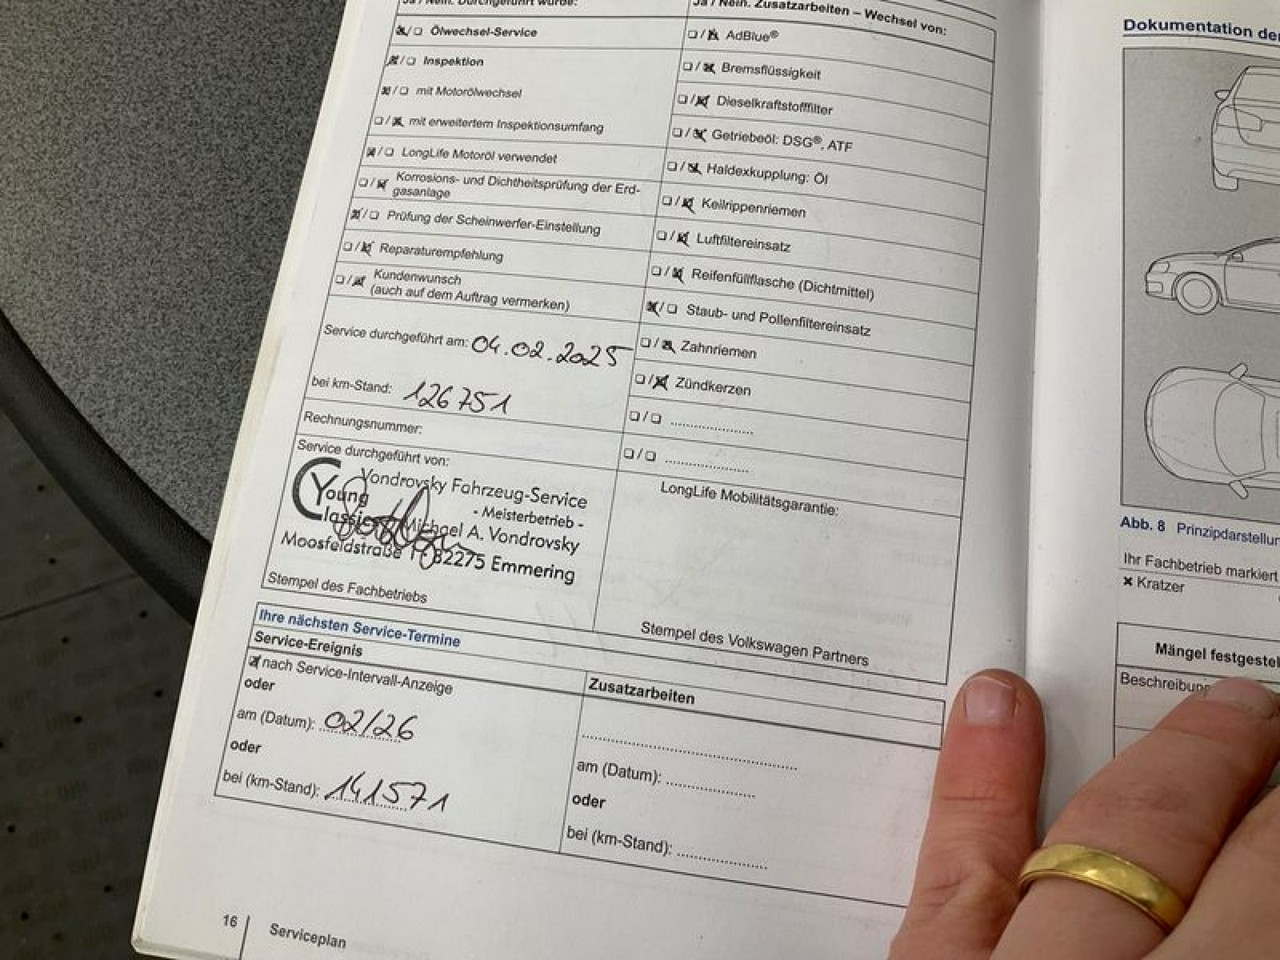 Ja / Nein. Durchgeführt wurde:
☒/☐ Ölwechsel-Service
☒/☐ Inspektion
☒/☐ mit Motorölwechsel
☐/☒ mit erweitertem Inspektionsumfang
☒/☐ LongLife Motoröl verwendet
☐/☒ Korrosions- und Dichtheitsprüfung der Erd-
gasanlage
☒/☐ Prüfung der Scheinwerfer-Einstellung
☐/☒ Reparaturempfehlung
☐/☒ Kundenwunsch
(auch auf dem Auftrag vermerken)
Service durchgeführt am: 04.02.2025
bei km-Stand: 126751
Rechnungsnummer:
Service durchgeführt von:
Vondrovsky Fahrzeug-Service
Young
- Meisterbetrieb -
lassics Michael A. Vondrovsky
Moosfeldstraße 82275 Emmering
Stempel des Fachbetriebs
Ja / Nein. Zusatzarbeiten – Wechsel von:
☐/☒ AdBlue®
☐/☒ Bremsflüssigkeit
☐/☒ Dieselkraftstofffilter
☐/☒ Getriebeöl: DSG®, ATF
☐/☒ Haldexkupplung: Öl
☐/☒ Keilrippenriemen
☐/☒ Luftfiltereinsatz
☐/☒ Reifenfüllflasche (Dichtmittel)
☒/☐ Staub- und Pollenfiltereinsatz
☐/☒ Zahnriemen
☐/☒ Zündkerzen
☐/☐ ....................
☐/☐ ....................
LongLife Mobilitätsgarantie:
Stempel des Volkswagen Partners
Ihre nächsten Service-Termine
Service-Ereignis
☒ nach Service-Intervall-Anzeige
oder
am (Datum): 02/26
oder
bei (km-Stand): 141571
Zusatzarbeiten
..................................................
am (Datum): .....................
oder
bei (km-Stand): .....................
16
Serviceplan
Dokumentation der
Abb. 8 Prinzipdarstellun
Ihr Fachbetrieb markiert
✖ Kratzer
Mängel festgestel
Beschreibung